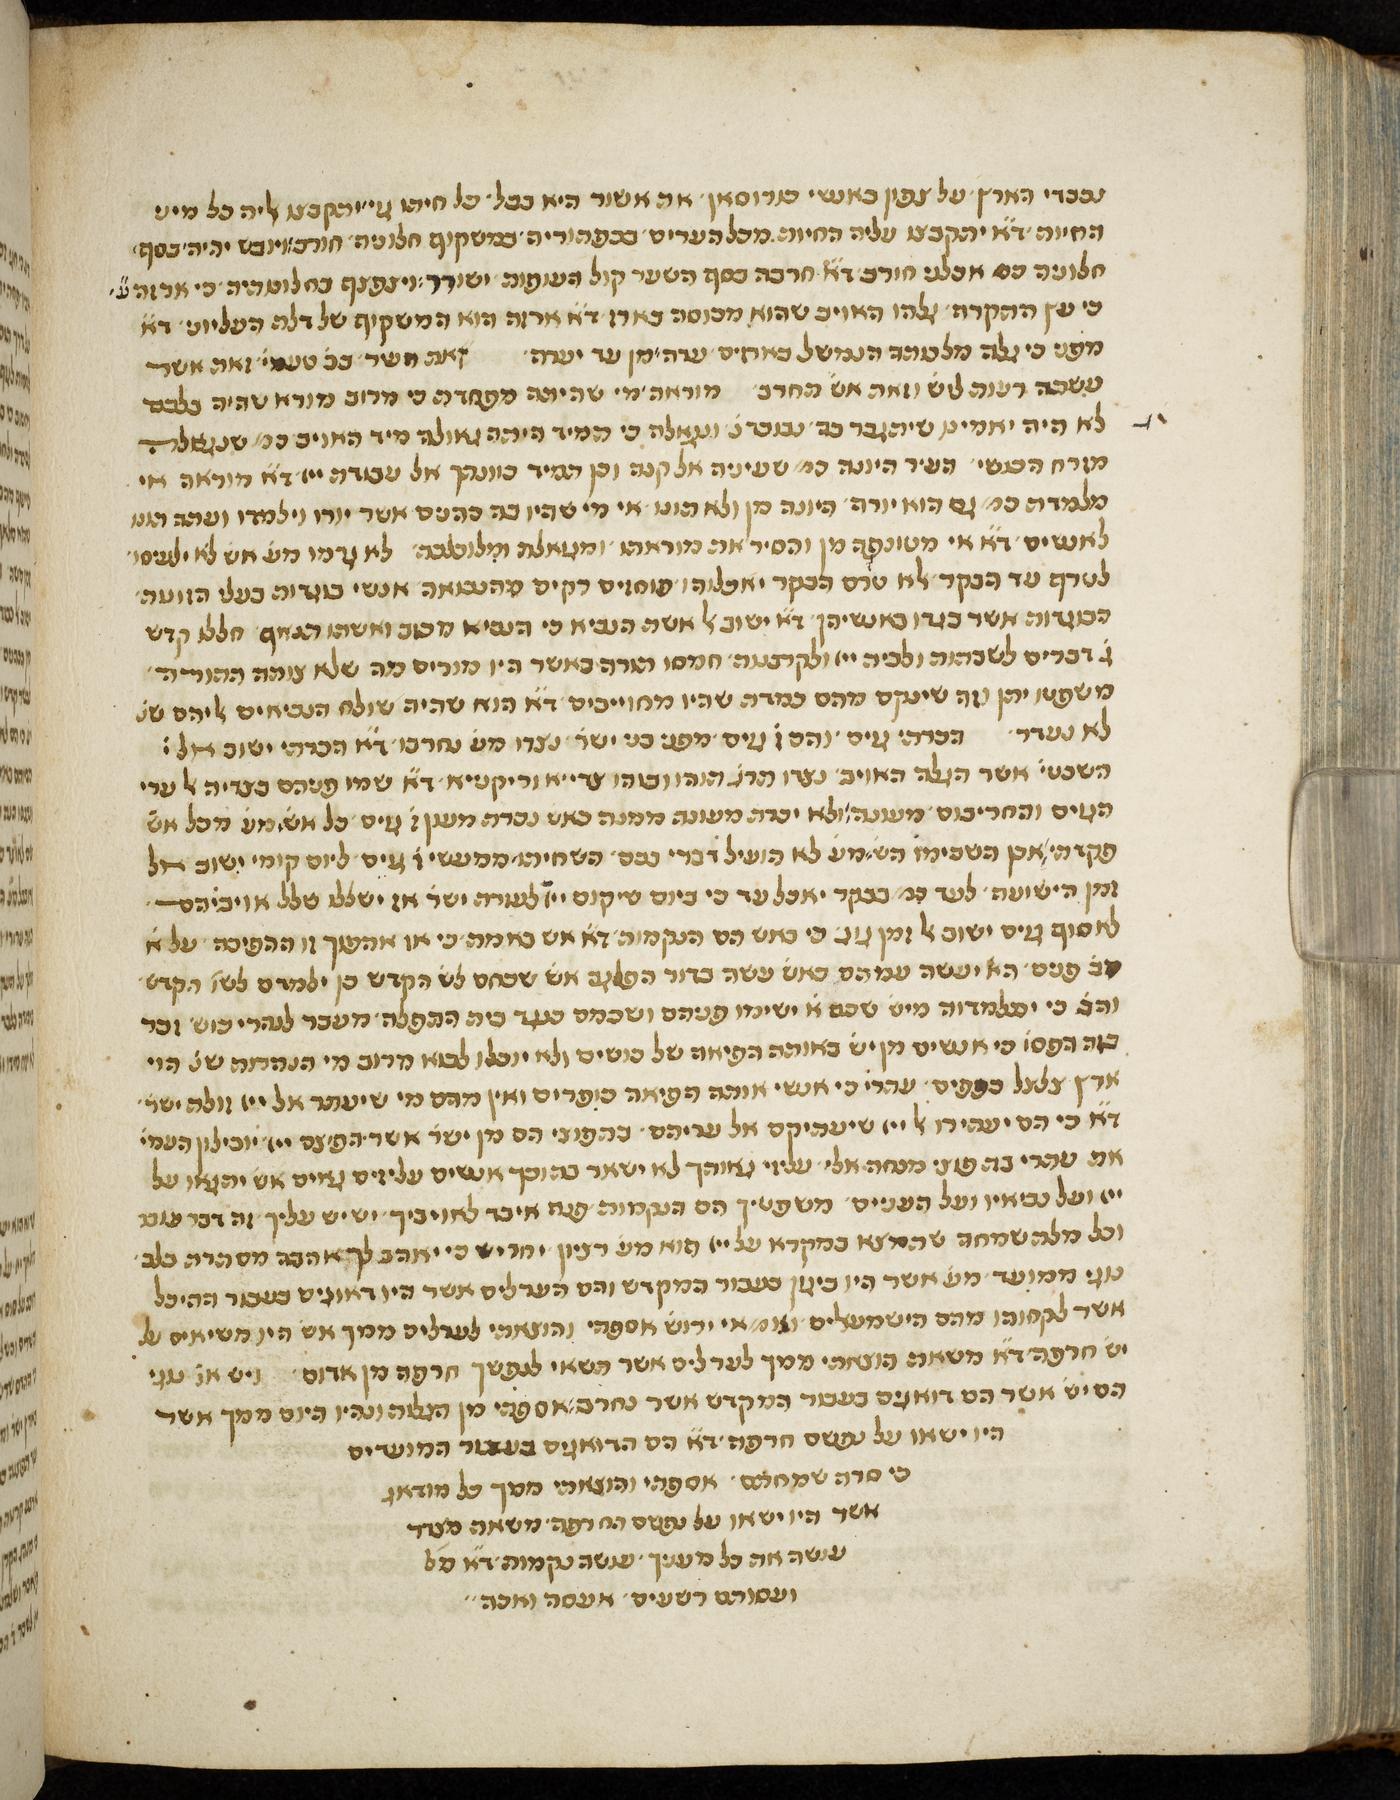 נכבדי הארץ על צפון כאנשי כורוסאן את אשור היא בבל כל חיתו גוי יתקבצו ליה כל מיני
החיות ד״א יתקבצו עליה החיות מכל הערים בכפתוריה במשקוף חלוניה חורב ויובש יהיה בסף
חלוניה כמ׳ אכלני חורב ד״א חרבה בסף השער קול העופות ישורר ויצפצף בחלונותיה כי ארזה
כי עץ התקרה גלהו האויב שהוא מכוסה בארז ד״א ארזה הוא המשקוף של דלת העליון ד״א
מפני כי גלה מלכותה הנמשל בארזים ערה מן ערו יערה זאת חסר בב׳ טעמי׳ זאת אשר
עשתה רעות ליש׳ וזאת אש׳ תחרב מוראה מי שהיתה מפחדת כי מרוב מורא שהיה בלבם
לא היה יאמינו שיתגבר בה נבוכדנ׳ ונגאלה כי תמיד היתה גאולה מיד האויב כמ׳ שנגאלה
מזרח הכוושי העיר היונה כמ׳ שעיניה אל קנה וכן תמיד כוונתך אל עבודת ייי ד״א מוראה אי
מלמדת כמ׳ גם הוא יורה היונה מן ולא תונו אי מי שהיו בה כהנים אשר יורו וילמדו ועתה הונו
לאנשים ד״א אי מטונפת מן והסיר את מוראתו ומגואלת ומלוכלכה לא גרמו מע׳ אש׳ לא ילינסו
לטרף עד הבקר לא טרם הבקר יאכלוהו פוחזים רקים מהנבואה אנשי בוגדות בעלי הזוועה
הבוגדות אשר בגדו באנשיהן ד״א ישוב ל׳ אשת הנביא כי הנביא מכזב ואשתו תנאף חללו קדש
ג׳ דברים לשכהות ולבית ייי ולקרבנות חמסו תורה כאשר היו מורים מה שלא צותה התורה
משפטו יתן וזה שינקם מהם כמדה שהיו מחוייבים ד״א הוא שהיה שולח הנביאים ליהם שנ׳
לא נעדר הכרתי גוים והם ז׳ גוים מפני בני ישר׳ נצדו מע׳ נחרבו ד״א הכרתי ישוב אל י׳
השבטי׳ אשר הגלה האויב נצדו תרג׳ תוהו ובוהו צדי״א וריקניא ד״א שמו פניהם בצדיה ל׳ ערי
הגוים והחריבום מעונה ולא יכרת מעונה ממנה כאש׳ נכרת מעון ז׳ גוים כל אש׳ מע׳ מכל אש׳
פקדתי אכן השכימו הש׳ מע׳ לא הועיל דברי בם השחיתו ממעשי ז׳ גוים ליום קומי ישוב אל
זמן הישועה לעד כמ׳ בבקר יאכל עד כי ביום שיקום ייי לעזרת ישר׳ אז ישללו שלל אויביהם
לאסוף גוים ישוב ל׳ זמן גוג כי באש הם הנקמות ד״א אש באמת כי אז אהפוך זו ההפיכה על א׳
מב׳ פנים הא׳ יעשה עמהם כאש׳ עשה בדור הפלגה אש׳ שכחם לש׳ הקדש כן ילמדם לשו׳ הקדש
והב׳ כי יתלמדוה מיש׳ שכם א׳ ישימו פניהם ושכמם כנגד בית התפלה מעבר לנהרי כוש זכר
בזה הפסו׳ כי אנשים מן יש׳ באותה הפיאה של כושים ולא יוכלו לבוא מרוב מי הנהרות שנ׳ הוי
ארץ צלצל כנפים עתרי כי אנשי אותה הפיאה כופרים ואין מהם מי שיעתר אל ייי זולת ישר׳
ד״א כי הם יעתירו ל׳ ייי שיעתיקם אל עריהם בת פוצי הם מן ישר׳ אשר הפיצם ייי יובילון העמי׳
את עתרי בת פוצי מנחה אלי עליזי גאותך לא ישאר בתוכך אנשים עליזים גאים אש׳ יתגאו על
ייי ועל נביאיו ועל העניים משפטיך הם הנקמות פנה איבד לאויביך ישיש עליך זה דבר עובר
וכל מלת שמחה שתמצא במקרא על ייי הוא מע׳ רצון יחריש כי יאהב לך אהבה מסתרת בלב
נוגי ממועד מע׳ אשר היו ביגון בעבור המקדש והם הערלים אשר היו דאוגים בעבור ההיכל
אשר לקחוהו מהם הישמעלים ומ׳ אי ירוש׳ אספתי והוצאתי לערלים ממך אש׳ היו משיאים על
יש׳ חרפה ד״א משאת הוצאתי ממך לערלים אשר תשאי לנפשך חרפה מן אדום ויש או׳ נוגי
הם יש׳ אשר הם דואגים בעבור המקדש אשר נחרב אספתי מן הגלות ונהיו היום ממך אשר
היו ישאו על נפשם חרפה ד״א הם הדואגים בעבור המועדים
כי סרה שמחתם אספתי והוצאתי ממך כל מודאג
אשר היו ישאו על נפשם החרפה משאת מצד
עושה את כל מעניך עושה נקמות ד״א מל׳
ועסותם רשעים אעסה ואכה